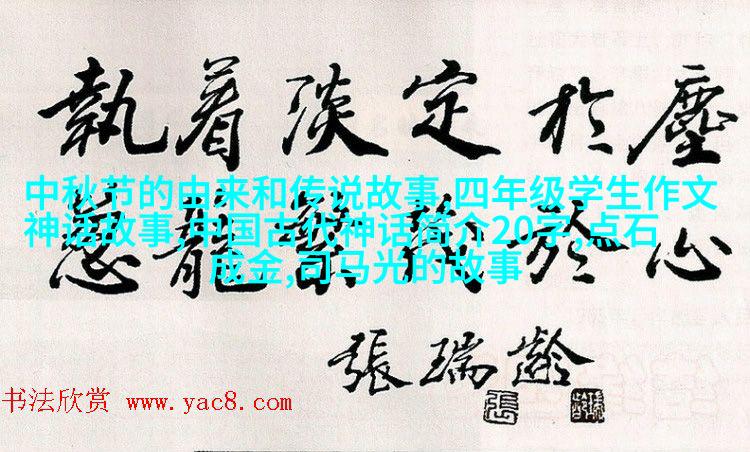 執着淡定於塵
中秋节的由来和传说故事,四年级学生作文
神话故事,中国古代神话简介20字,点石
成金,司马光的故事
龍 於心
張瑞齡
張
书法欣赏 www.yac8.com